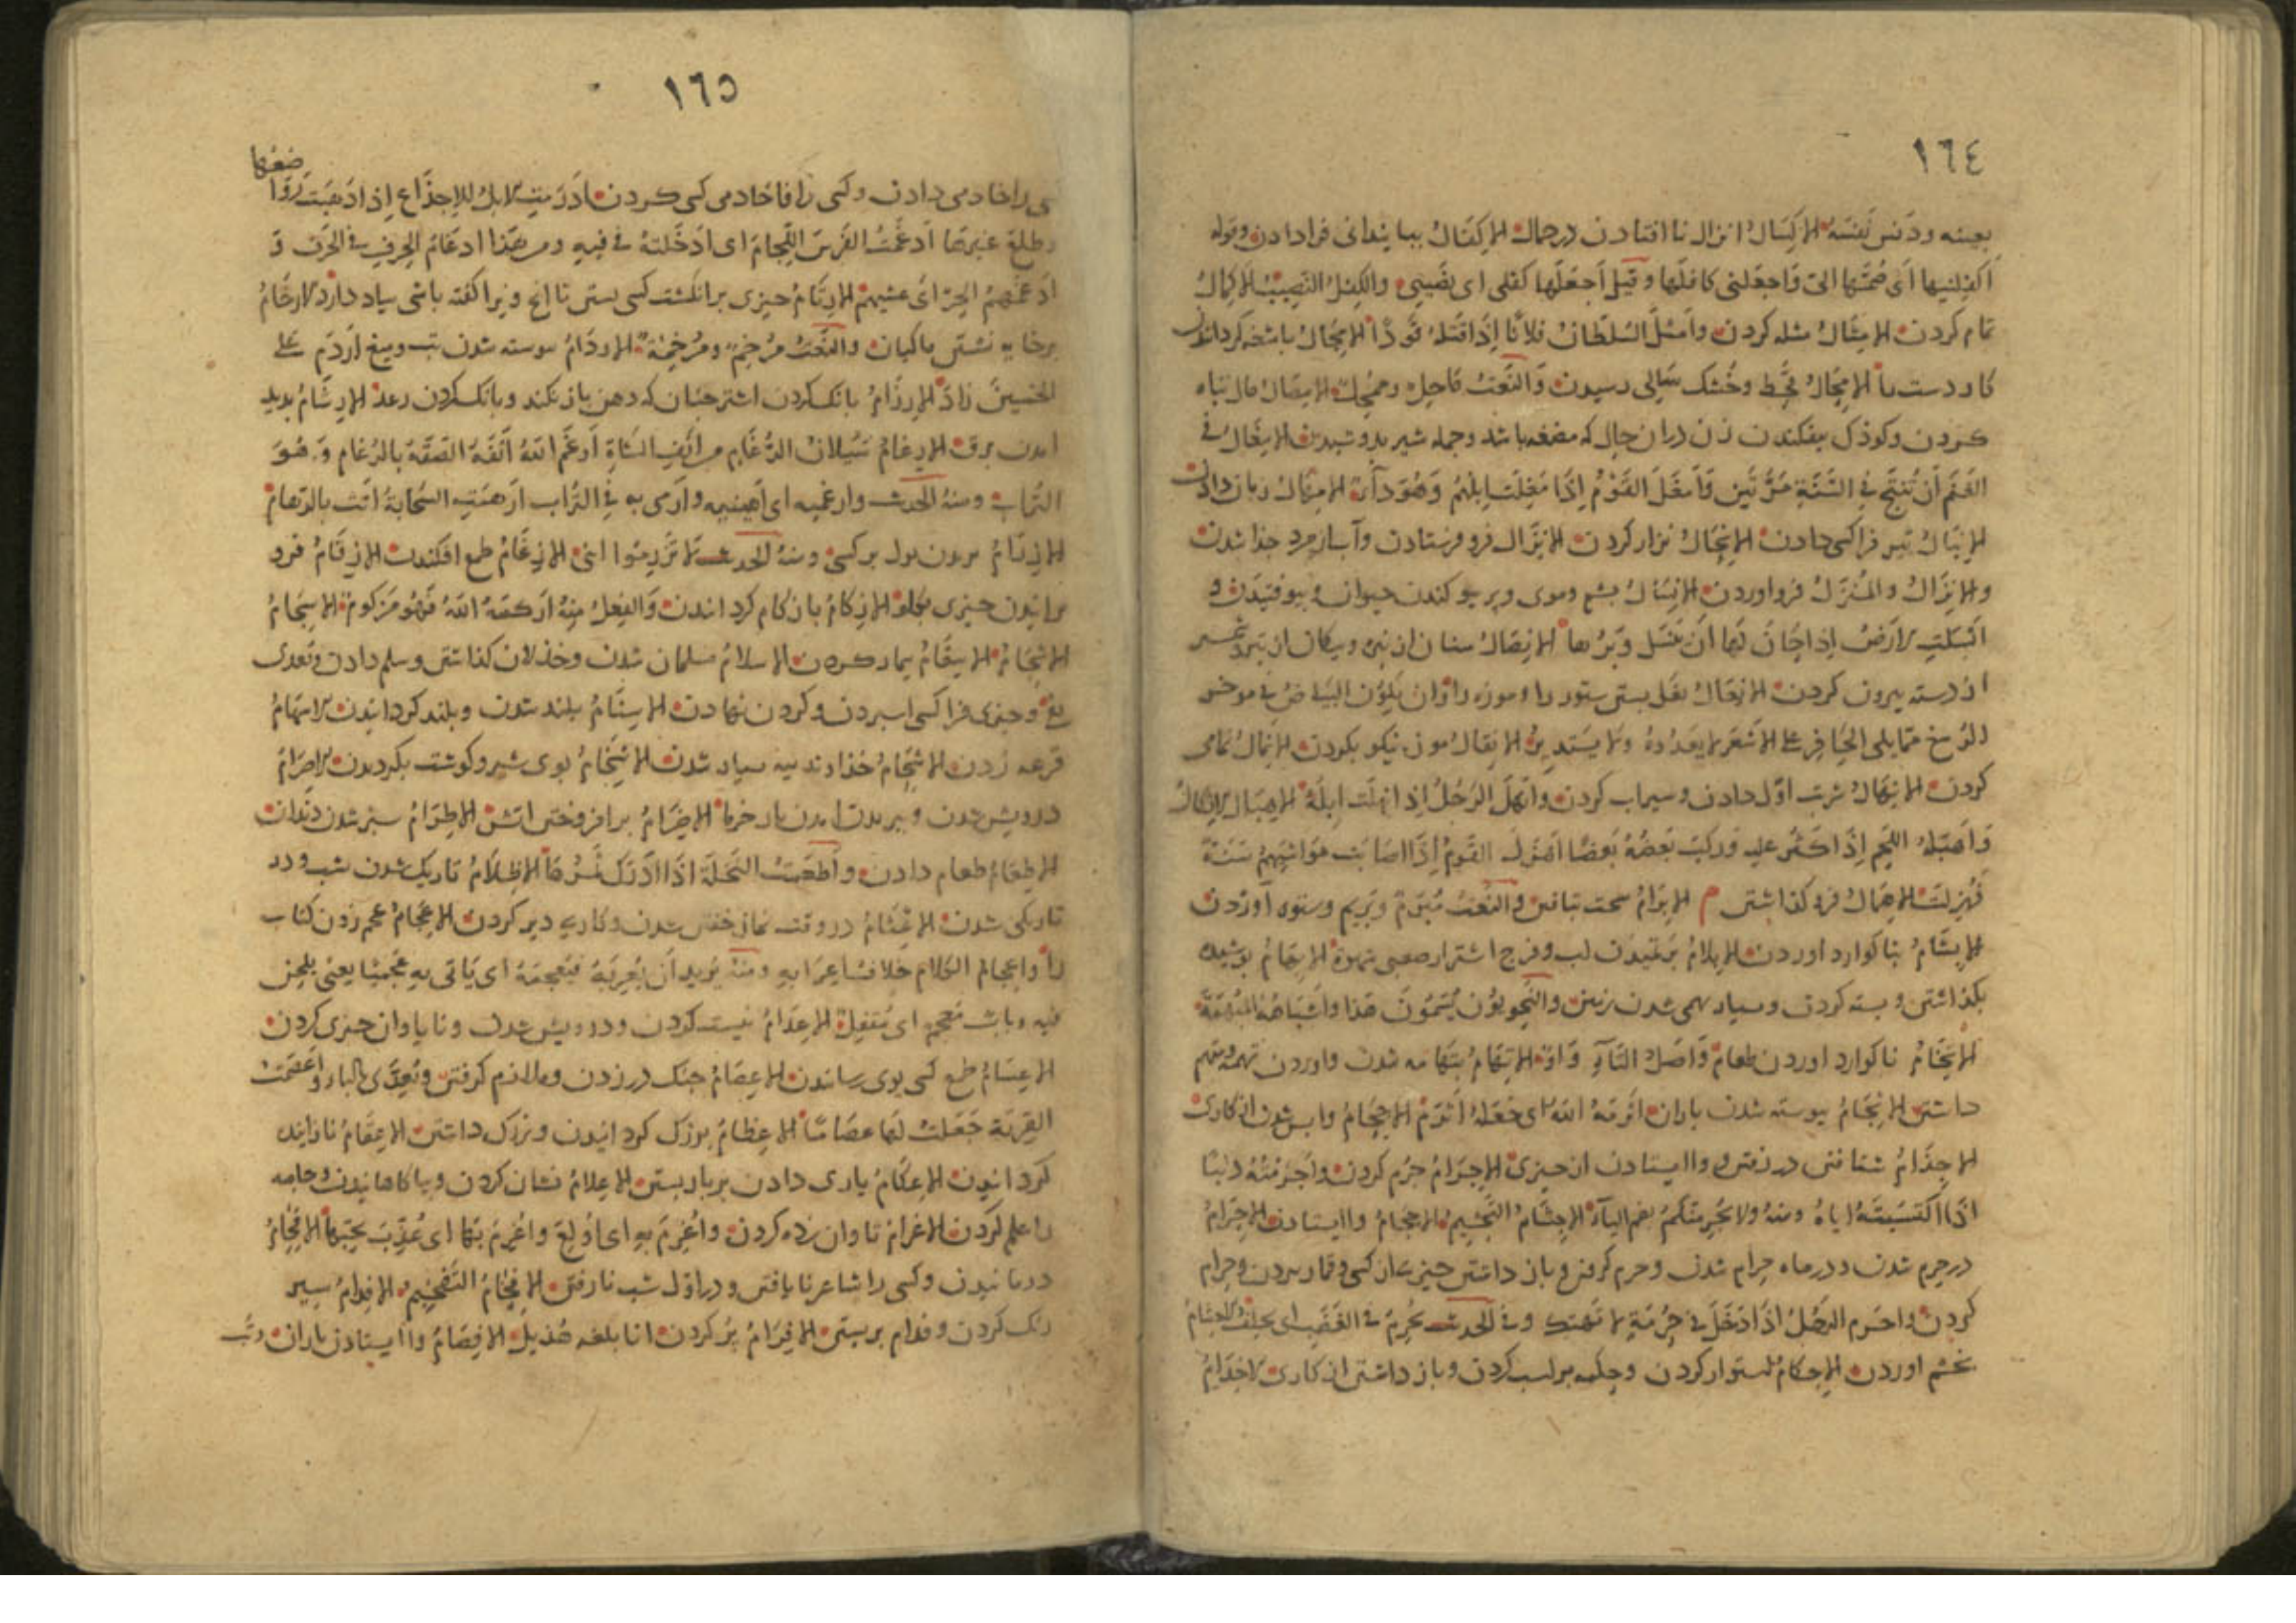 ١٦٤
بعینه ودَنس نَفسَهُ الاِکسَالُ انزال نا افتادن در جماع الاِکفَالُ بپایندانی فرادادن وقوله
اَکفِلنیها ای ضُمَّها الیّ وَاجعَلنی کافلَها وقیل اَجعَلها کفلی ای نصَیبی والکِفلُ النَصِیبُ الاِکمَالُ
تمام کردن الاِمثَالُ مثله کردن واَمثلَ السُلطَانُ فلاناً اِذَا قتَلهُ قَوَدًا الاِمجَالُ باشخه کردانیدن
کار دست را الاِمحَالُ قحط وخُشک سَالی رسیدن وَالنَّعتُ مَاحِل وممُحِل الاِمصَالُ مال تباه
کردن وکوذک بیفکندن زن دران حال که مضغه باشد وجمله شیر بدوشیدن الاِمغَالُ فی
الغَنَم اَن تُنتَج فِی السَّنَةِ مَرَّتَین وَاَمغَلَ القَوْمُ اِذَا مَغِلَت اِبلُهُم وَهُوَ دَآءٌ الاِمهَالُ زمان دادن
الاِنبَالُ تیر فرا کسی دادن الاِنحَالُ نزار کردن الاِنزَالُ فرو فرستادن وآب از مرد جذا شدن
والاِنزَالُ والمُنزَلُ فرو اوردن الاِنسَالُ پشم وموی وپر بیوکندن حیوان وبیوفتیدن و
اَنسَلَتِ الاَرضُ اذا حَانَ لَها اَن تَنسَل وَبَرُها الاِنصَالُ سنان از نیزه وپیکان از تیر وشمشیر
از دسته بیرون کردن الاِنعَالُ نعل بستن ستور را وموزه را وَان یکُون البَیَاضُ فی موخر
الرُسغ ممّا یلی الحَافِر علی الاَشعَر لا یعَدُوهُ ولا یَستَدِیرُ الاِنقَالُ موزه نیکو بکردن الاِنمَالُ نمّامی
کردن الاِنهَالُ شربت اوّل دادن وسیراب کردن واَنهَلَ الرَجُلُ اِذا نهِلَت اِبِلُهُ الاِهبَالُ الاِثکَالُ
وَاَهبَلهُ اللّحم اِذَا کثُر علیه ورکبَ بَعضُهُ بَعضًا اَهزلَ القَومُ اِذَا اصَابَت مَوَاشیَهُم سَنَةٌ
فَهُزِلَت الاِهمَالُ فرو کذاشتن م الاِبرَامُ سخت تبافتن والنَّعتُ مُبرَمٌ وبَرِیم وستوه آوردن
الاِبشَامُ بناکوارد اوردن الاِبلامُ برتمیدن لب وفرج اشتر از صعبی شهوة الاِبهَامُ پوشیده
بکذاشتن وبسته کردن وبسیار بهمی شدن زمین والنَحویُّون یُسَمّونَ هَذَا وَاَشبَاهَهُ المُبهَمَةَ
الاِتخَامُ ناکوارد اوردن طعام وَاَصلُ التَآءِ وَاوٌ الاِتهَامُ بتهامه شدن واوردن تهمة ومتهم
داشتن الاِثجَامُ پیوسته شدن باران اَثرَمَهُ اللهُ ای جَعَلهُ اَثرَمَ الاِجحَامُ واپس شدن از کاری
الاِجذَامُ شتافتن در رفتن وواایستادن از چیزی الاِجرَامُ جرُم کردن واَجرَمتُهُ ذنبًا
اذا اکسَبتَهُ اِیاهُ ومنهُ ولا یُجرِمَنّکُم بضم الیآء الاِجشَامُ التَجشِیمُ الاِحجَامُ واایستادن الاِحرَامُ
در حرم شدن ودر ماه حرام شدن وحرم کرفتن وباز داشتن چیزی از کسی وقمار بردن وحرام
کردن واحرم الرَجُلُ اِذَا دَخَلَ فی حُرمَةٍ لا تُهتک وفی الحدیث یحُرِم فی الغَضَب ای یحلف الاِحشَامُ
بخشم اوردن الاِحکَامُ استوار کردن وحکمه بر اسب کردن وباز داشتن از کاری الاِخدَامُ
١٦٥
کسی را خادمی دادن وکسی را فا خادمی کسی کردن ادرَمَتِ الابِلُ للاِجذَاعِ اِذا ذَهَبَت رَوَا
ضعُها
وطلعَ غیرهَا اَدغَمتُ الفَرَسَ اللّجامَ ای اَدخَلتهُ فی فِیهِ ومن هَذا ادغَامُ الحرفِ فی الحَرَف وَ
اَدغمَهُمُ الحَرّ ای غشیهمُ الاِرتَامُ چیزی بر انکشت کسی بستن تا انچ ویرا کفته باشی بیاد دارد الاِرخَامُ
بر خایه نشستن ماکیان والنَّعتُ مُرخِمٌ ومُرخِمَةٌ الاِردَامُ پیوسته شدن تب ومیغ اَردَم علی
الخمسینَ زادَ الاِرزَامُ بانک کردن اشتر چنان که دهن باز نکند وبانک کردن رعد الاِرشَامُ بدید
امدن برق الاِرغَامُ سَیَلانُ الرُّغَامِ من اَنفِ الشَاةِ اَرغَمَ اللهُ اَنفَهُ الصَقَهُ بالرّغام وَهُوَ
التُراب ومنهُ الحدیث وارغمیه ای اَهِینیه وارمی به فی التُّراب اَرهَمَتِ السَّحابَةُ اتَت بالرّهام
الاِزرَامُ بریدن بول بر کسی ومنهُ الحدیث لا تُزرِمُوا ابنی الاِزغَامُ طمع افکندن الاِزقَامُ فرو
برانیدن چیزی بکلو الاِزکَامُ با زکام کردانیدن وَالفِعلُ مِنهُ اَزکمَهُ اللهُ فَهُوَ مَزکومٌ الاِسجَامُ
الاِثجَامُ الاِسقَامُ بیمار کردن الاِسلامُ مسلمان شدن وخذلان کذاشتن وسلم دادن وتعدی
بفی وچیزی فرا کسی اسپردن وکردن نهادن الاِسنَامُ بلند شدن وبلند کردانیدن الاِسهَامُ
قرعه زدن الاِشحَامُ خذاوند پیه بسیار شدن الاِشخَامُ بوی شیر وکوشت بکردیدن الاِصرَامُ
درویش شدن وببریدن امدن بار خرما الاِضرَامُ بر افروختن اتش الاِطرَامُ سبز شدن دندان
الاِطعَامُ طعام دادن واَطعَمَت النَخلَةُ اِذَا اَدرَک ثمَرُهَا الاِظلَامُ تاریک شدن شب ودر
تاریکی شدن الاِعتَامُ در وقت نماز خفتن شدن وکاری دیر کردن الاِعجَامُ عجم زدن کتاب
را واِعجام الکلام خلافُ اِعرَابِهِ ومنهُ یُرِیدُ اَن یُعرِبَهُ فیُعجِمَهُ ای یَاتی بِهِ عَجَمیًّا یعنی یلحن
فیه وباب مُعجَم ای مُقفَل الاِعدَامُ نیست کردن ودرویش شدن ونایاوان چیزی کردن
الاِعسَامُ طمع کسی بوی رسانیدن الاِعصَامُ چنک در زدن وملازم کرفتن وتعدّی بالباء واَعصَمتُ
القِربَةَ جَعَلتُ لَها عصَامًا الاِعظَامُ بوزرک کردانیدن وبزرک داشتن الاِعقَامُ نازاینده
کردانیدن الاِعکَامُ یاری دادن بر بار بستن الاِعلَامُ نشان کردن وبیاکاهانیدن وجامه
را علم کردن الاِغرَامُ تاوان زده کردن واُغرِمَ بهِ ای اُولِعَ واُغرِمَ بهَا ای عُذِّبَ بحبّها الاِفحَامُ
درمانیدن وکسی را شاعر نایافتن ودر اوّل شب نارفتن الاِفخَامُ التَفخِیم الاِفدَامُ سیر
رنک کردن وفدام بر بستن الاِفرَامُ پُر کردن انا بلغه هُذیل الاِفصَامُ واایستادن باران وتَب